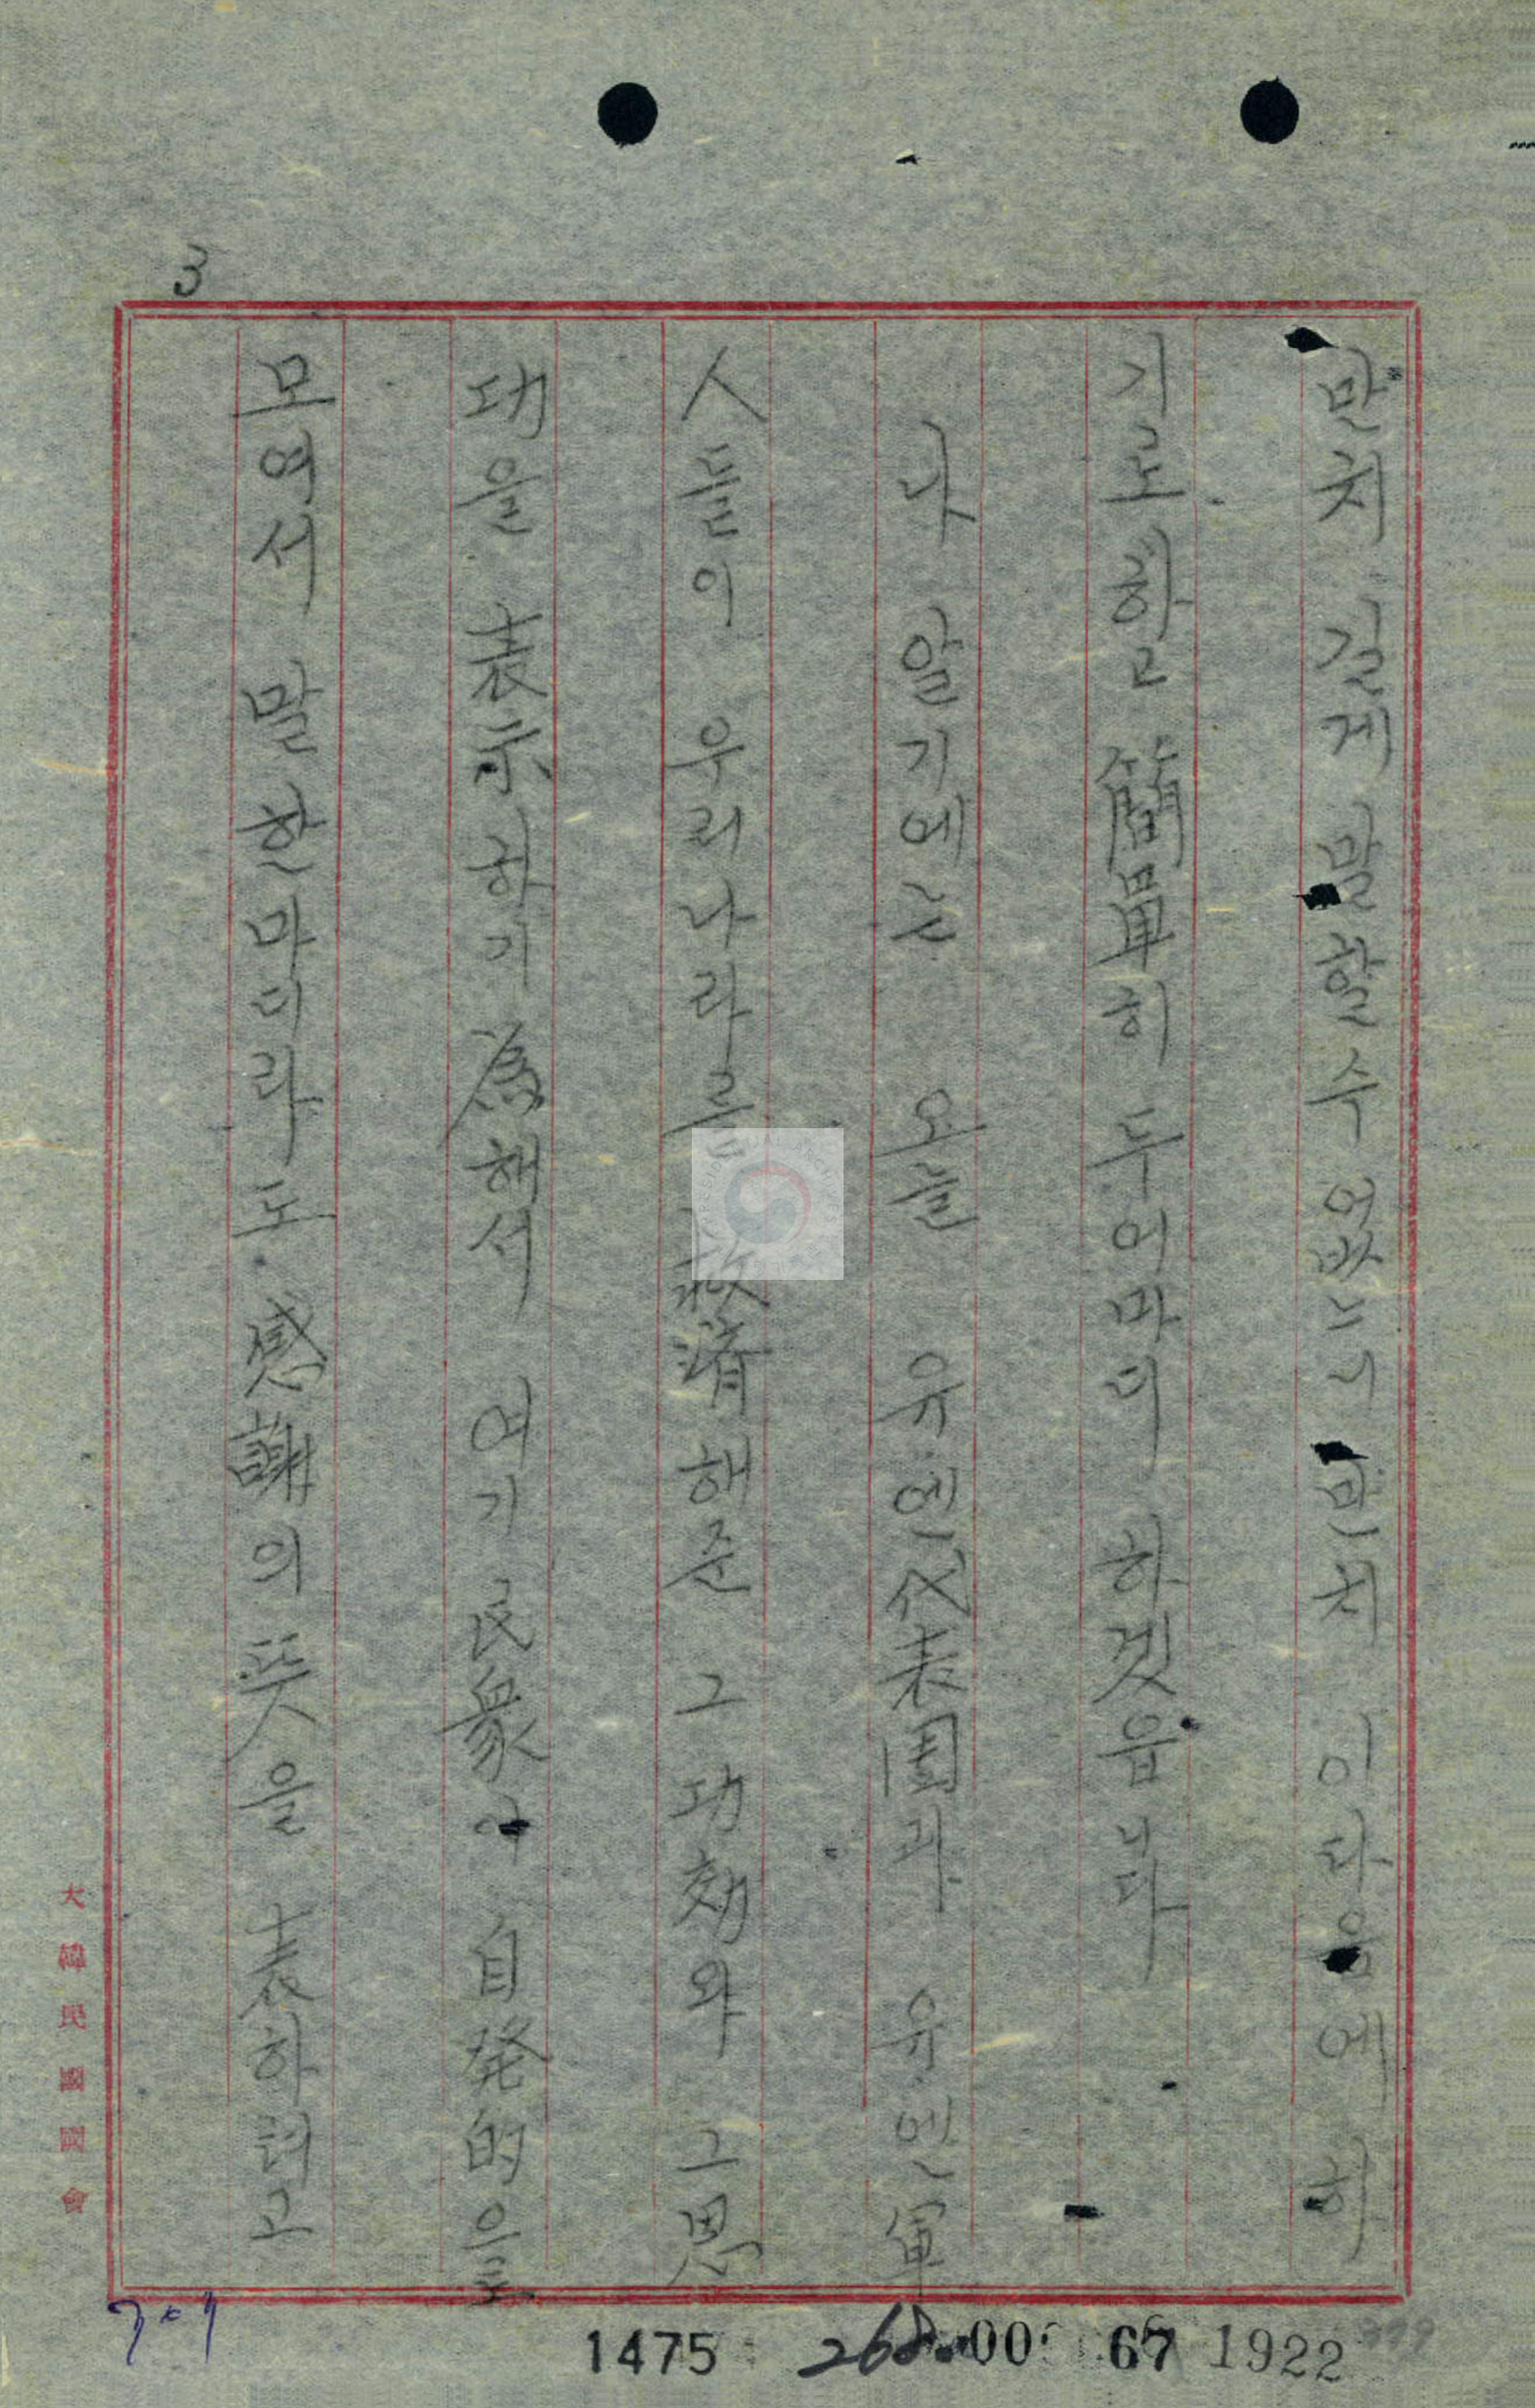 3
만치 길게 말할수 없느니만치 이다음에 하
기로하고 簡單히 두어마디 하겠읍니다
나 알기에는 오늘 유·엔代表団과 유·엔軍
人들의 우리나라를 救済해준 그 功効와 그 恩
功을 表示하기 為해서 여기 民衆이 自発的으로
모여서 말한마디라도 感謝의 뜻을 表하려고
大韓民國國會
1475 268 00 67 1922